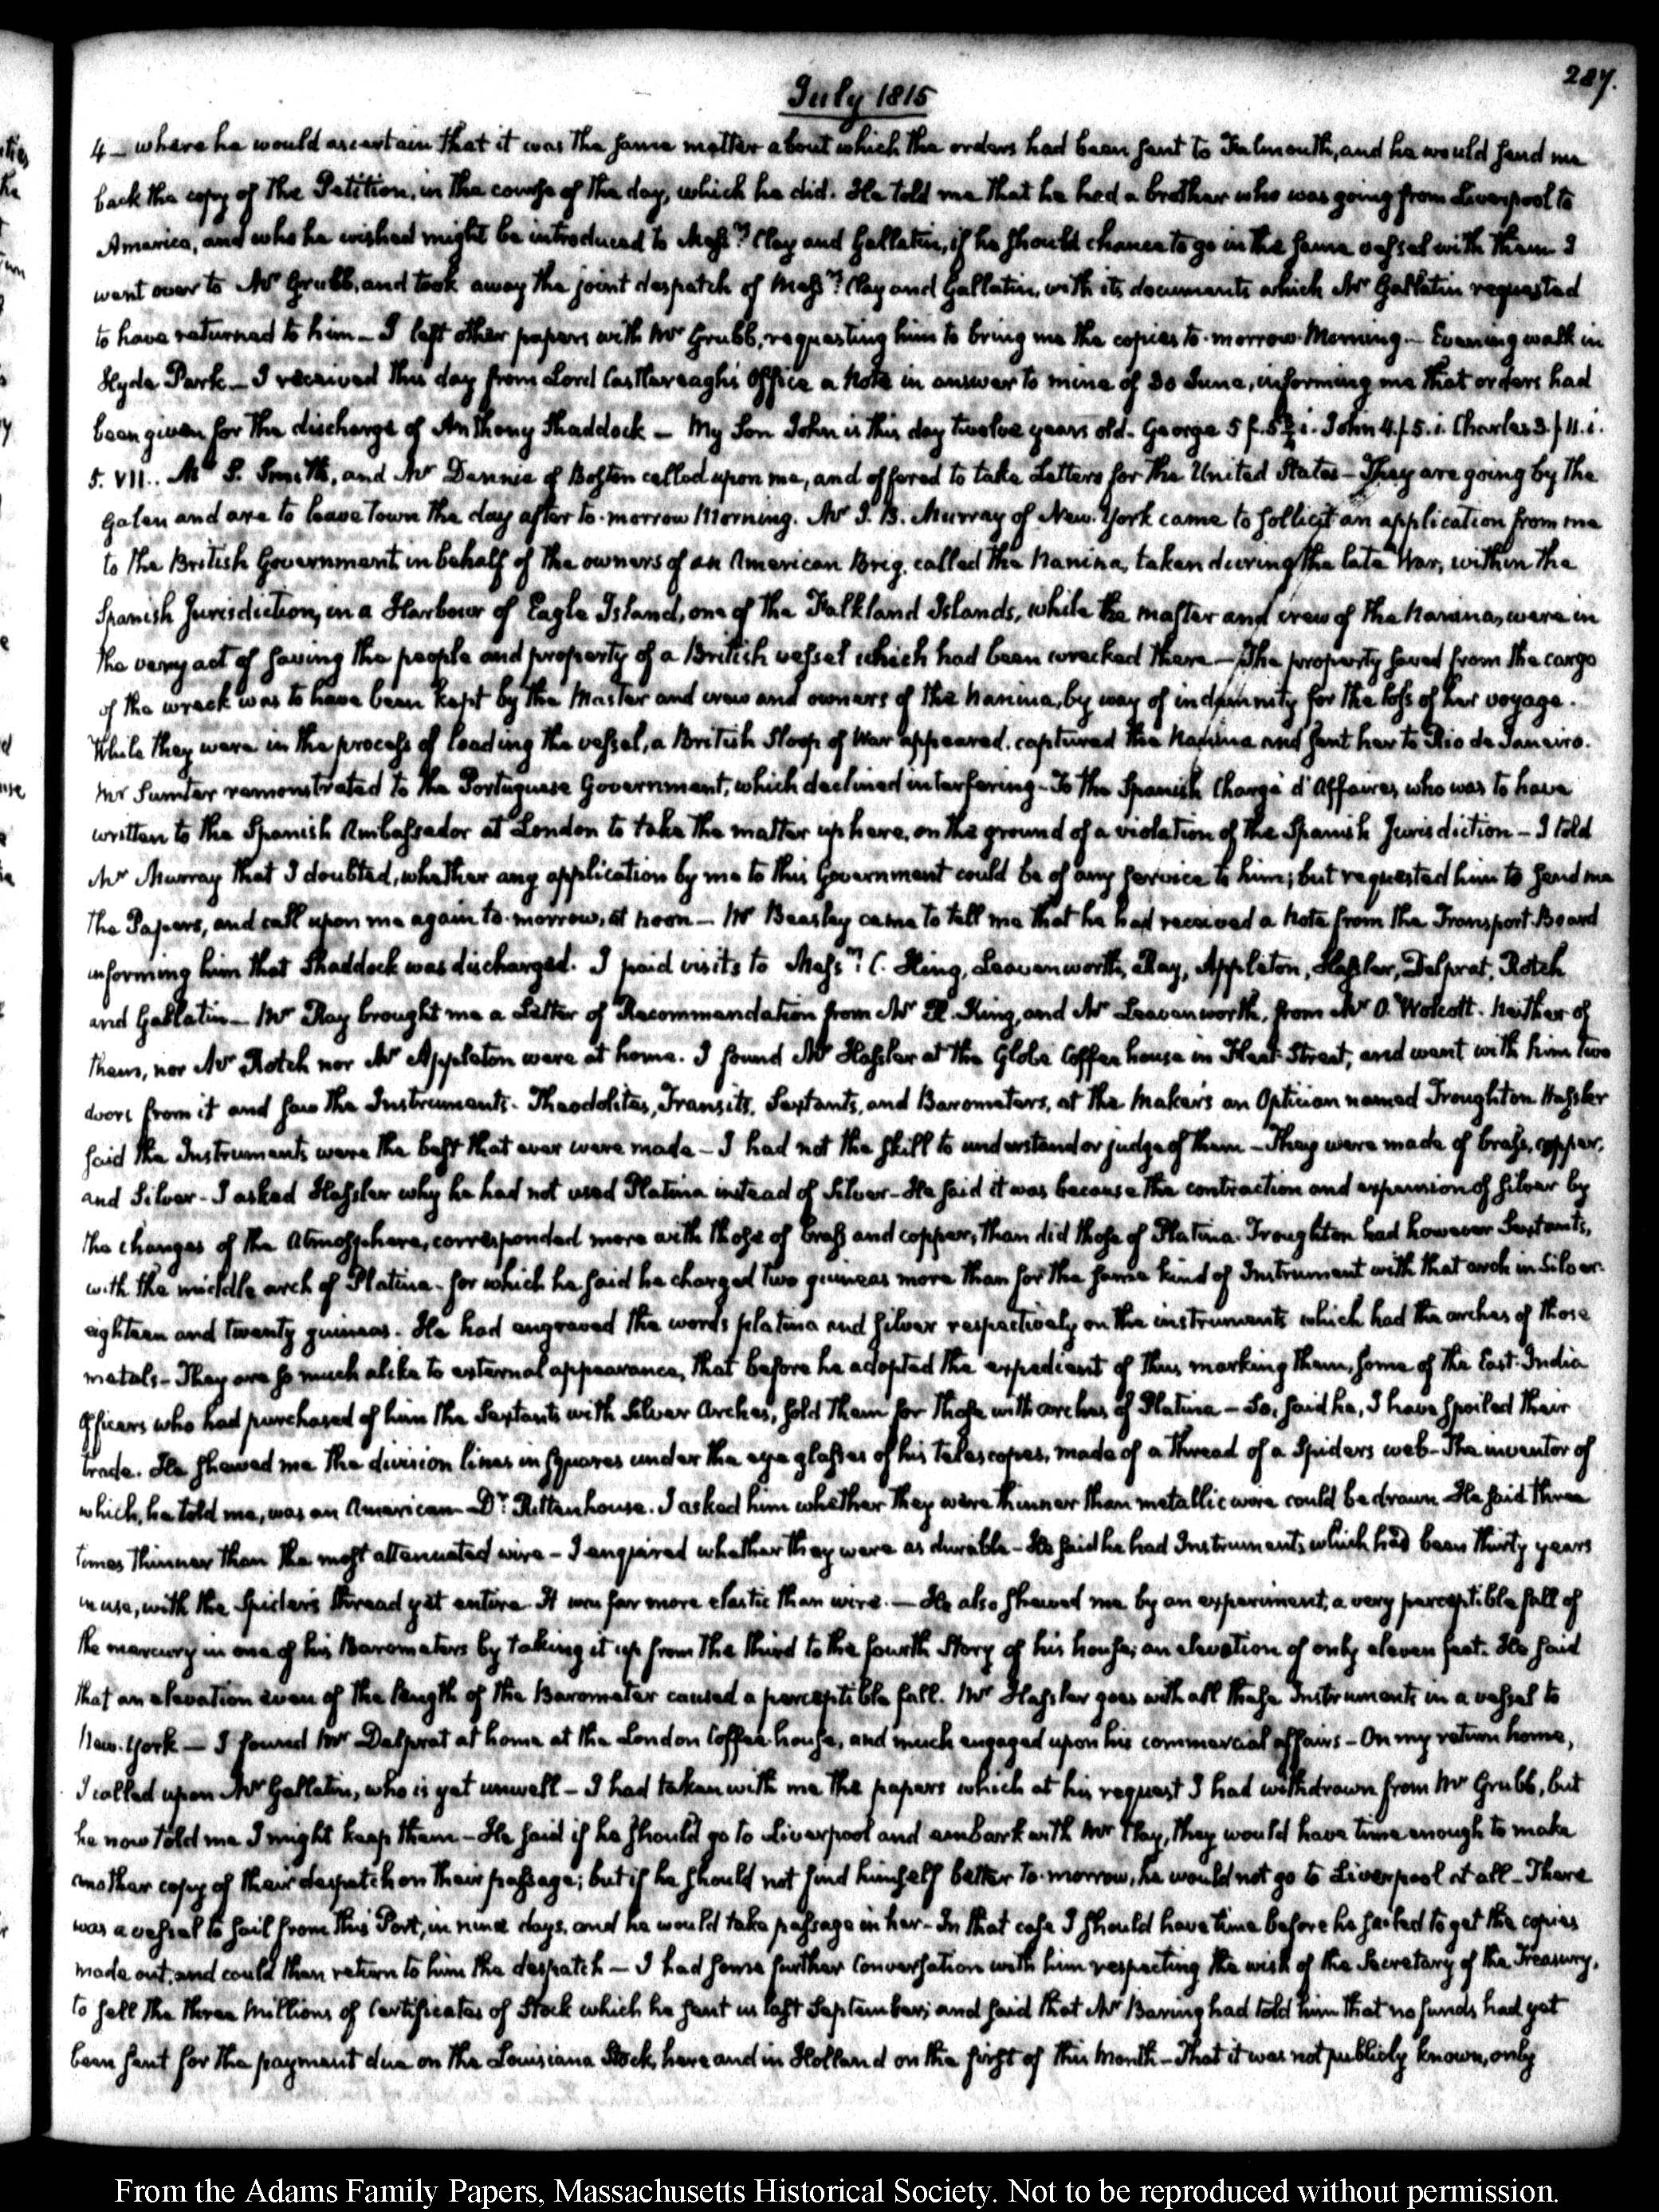 287.
July 1815
4 — where he would ascertain that it was the same matter about which the orders had been sent to Falmouth, and he would send me
back the copy of the Petition, in the course of the day, which he did. He told me that he had a brother who was going from Liverpool to
America, and who he wished might be introduced to Messrs Clay and Gallatin, if he should chance to go in the same vessel with them. I
went over to Mr Grubb, and took away the joint despatch of Messrs Clay and Gallatin, with its documents which Mr Gallatin requested
to have returned to him — I left other papers with Mr Grubb, requesting him to bring me the copies to-morrow Morning — Evening walk in
Hyde Park — I received this day from Lord Castlereagh's Office a Note in answer to mine of 30 June, informing me that orders had
been given for the discharge of Anthony Shaddock — My Son John is this day twelve years old. George 5 f. 5¾ i. John 4. f. 5. i. Charles 3. f 11. i.
5. VII.. Mr S. Smith, and Mr Dennie of Boston called upon me, and offered to take Letters for the United States — They are going by the
Galen and are to leave Town the day after to-morrow Morning. Mr J. B. Murray of New-York came to sollicit an application from me
to the British Government in behalf of the owners of an American Brig, called the Nanina, taken during the late War, within the
Spanish Jurisdiction, in a Harbour of Eagle Island, one of the Falkland Islands, while the master and crew of the Nanina, were in
the very act of saving the people and property of a British vessel which had been wrecked there — The property saved from the cargo
of the wreck was to have been kept by the Master and crew and owners of the Nanina, by way of indemnity for the loss of her voyage.
While they were in the process of loading the vessel, a British Sloop of War appeared, captured the Nanina and sent her to Rio de Janeiro.
Mr Sumter remonstrated to the Portuguese Government, which declined interfering — To the Spanish Chargé d'Affaires, who was to have
written to the Spanish Ambassador at London to take the matter up here, on the ground of a violation of the Spanish Jurisdiction — I told
Mr Murray that I doubted, whether any application by me to this Government could be of any service to him; but requested him to send me
the Papers, and call upon me again to-morrow, at noon — Mr Beasley came to tell me that he had received a Note from the Transport-Board
informing him that Shaddock was discharged. I paid visits to Messrs C. King, Leavenworth, Ray, Appleton, Hassler, Delprat, Rotch
and Gallatin — Mr Ray brought me a Letter of Recommendation from Mr R. King, and Mr Leavenworth, from Mr O. Wolcott. Neither of
them, nor Mr Rotch nor Mr Appleton were at home. I found Mr Hassler at the Globe Coffee house in Fleet-Street, and went with him two
doors from it and saw the Instruments. Theodolites, Transits, Sextants, and Barometers, at the Makers an Optician named Troughton Hassler
said the Instruments were the best that ever were made — I had not the skill to understand or judge of them — They were made of brass, copper,
and Silver — I asked Hassler why he had not used Platina instead of Silver — He said it was because the contraction and expansion of silver by
the changes of the Atmosphere, corresponded more with those of brass and copper, than did those of Platina. Troughton had however Sextants,
with the middle arch of Platina — for which he said he charged two guineas more than for the same kind of Instrument with that arch in Silver.
eighteen and twenty guineas. He had engraved the words platina and silver respectively on the instruments which had the arches of those
metals — They are so much alike to external appearance, that before he adopted the expedient of thus marking them, some of the East-India
Officers who had purchased of him the Sextants with Silver Arches, sold them for those with arches of Platina — So, said he, I have spoiled their
trade. He shewed me the division lines in squares under the eye glasses of his telescopes, made of a thread of a Spiders web — The inventor of
which, he told me, was an American — Dr Rittenhouse. I asked him whether they were thinner than metallic wire could be drawn He said three
times thinner than the most attenuated wire — I enquired whether they were as durable — He said he had Instruments which had been thirty years
in use, with the Spider's thread yet entire. It was far more elastic than wire. — He also shewed me by an experiment, a very perceptible fall of
the mercury in one of his Barometers by taking it up from the third to the fourth Story of his house; an elevation of only eleven feet. He said
that an elevation even of the length of the Barometer caused a perceptible fall. Mr Hassler goes with all these Instruments in a vessel to
New-York — I found Mr Delprat at home at the London Coffee-house, and much engaged upon his commercial affairs — On my return home,
I called upon Mr Gallatin, who is yet unwell — I had taken with me the papers which at his request I had withdrawn from Mr Grubb, but
he now told me I might keep them — He said if he should go to Liverpool and embark with Mr Clay, they would have time enough to make
another copy of their despatch on their passage; but if he should not find himself better to-morrow, he would not go to Liverpool at all — There
was a vessel to sail from this Port, in nine days, and he would take passage in her — In that case I should have time before he sailed to get the copies
made out, and could then return to him the despatch — I had some further Conversation with him respecting the wish of the Secretary of the Treasury,
to sell the three Millions of Certificates of Stock which he sent us last September; and said that Mr Baring had told him that no funds had yet
been sent for the payment due on the Louisiana Stock, here and in Holland on the first of this Month — That it was not publicly known, only
From the Adams Family Papers, Massachusetts Historical Society. Not to be reproduced without permission.